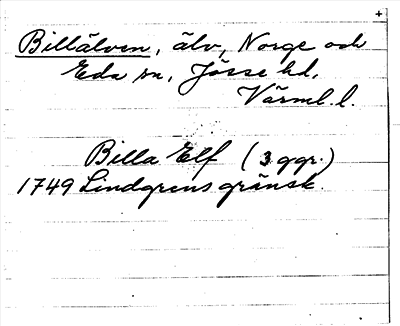 +
Billälven, älv, Norge och
Eda sn, Jösse hd,
Värml. l.
Billa Elf (3 ggr.)
1749 Lindgrens gränsk.